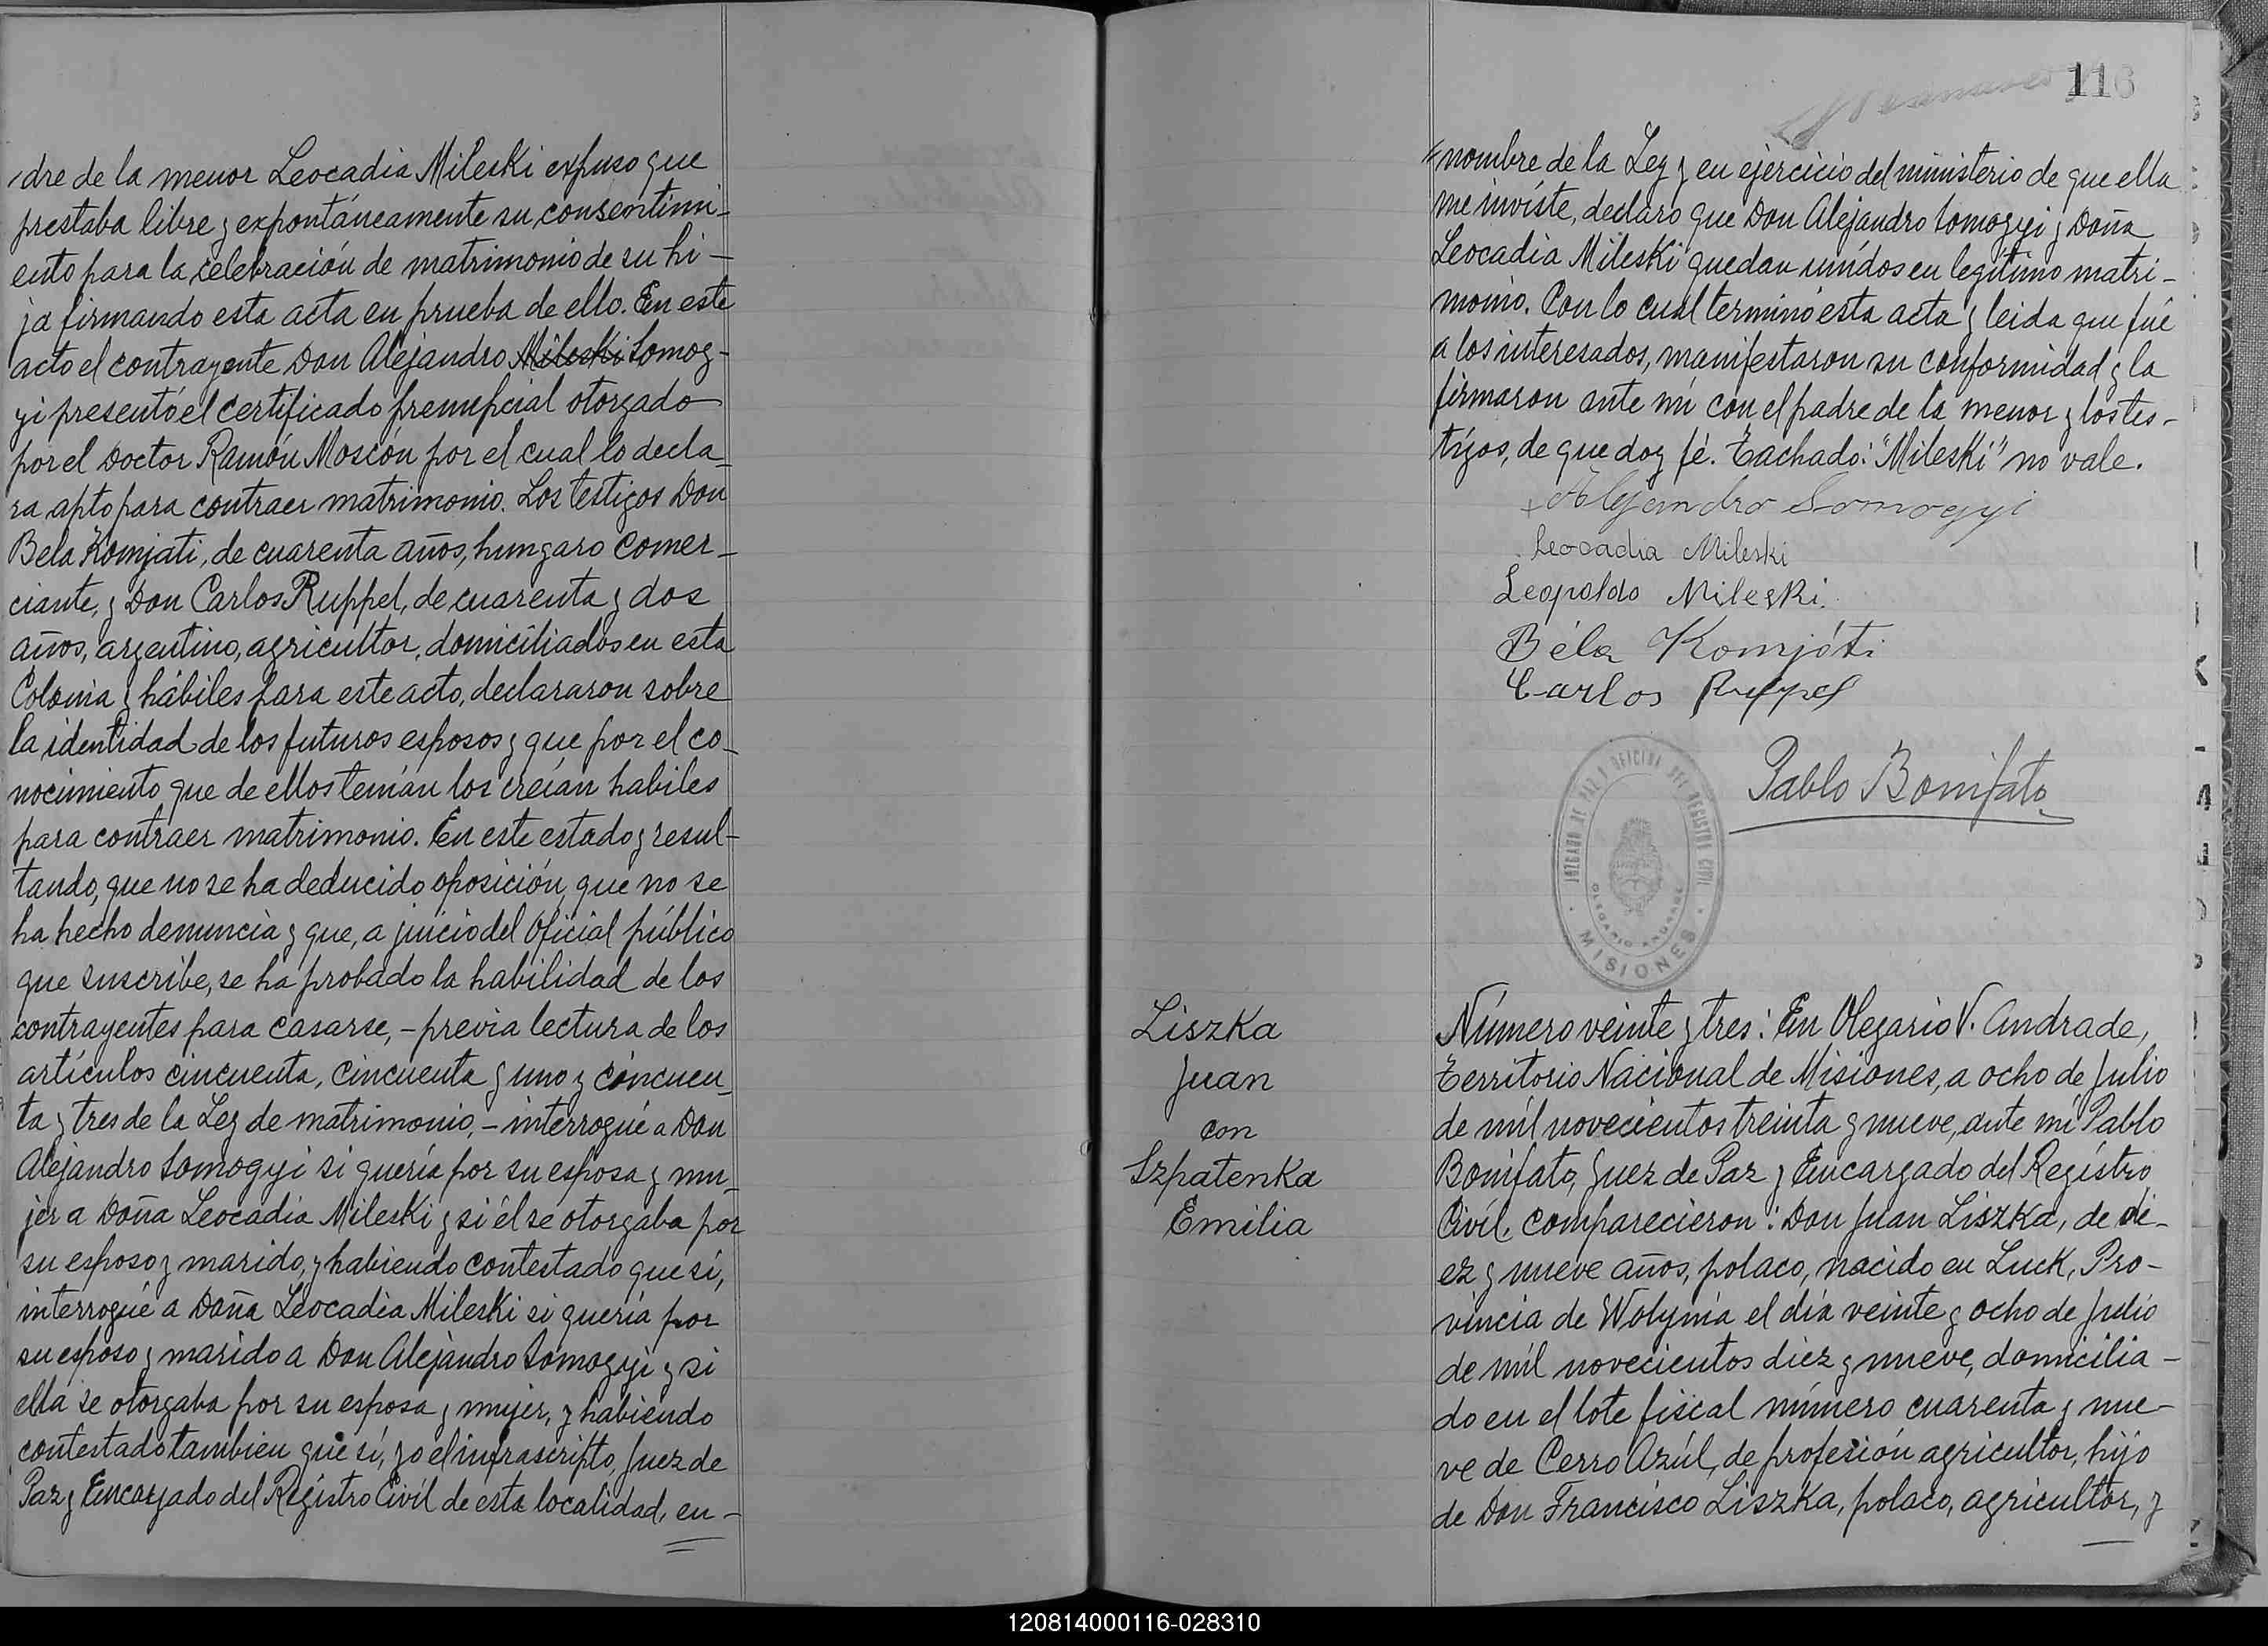 dre de la menor Leocadia Mileski expuso que
prestaba libre y expontáneamente su consentimi-
ento para la celebración de matrimonio de su hi-
ja firmando esta acta en prueba de ello. En este
acto el contrayente Don Alejandro Mileski Somog-
yi presentó el certificado prenupcial otorgado
por el Doctor Ramón Moscón por el cual lo decla-
ra apto para contraer matrimonio. Los testigos Don
Bela Komjati, de cuarenta años, hungaro comer-
ciante, y Don Carlos Ruppel, de cuarenta y dos
años, argentino, agricultor, domiciliados en esta
Colonia y hábiles para este acto, declararon sobre
la identidad de los futuros esposos y que por el co-
nocimiento que de ellos tenían los creían habiles
para contraer matrimonio. En este estado y resul-
tando, que no se ha deducido oposición, que no se
ha hecho denuncia y que, a juicio del Oficial público
que suscribe, se ha probado la habilidad de los
contrayentes para casarse, - previa lectura de los
artículos cincuenta, cincuenta y uno y cincuen-
ta y tres de la Ley de matrimonio, - interrogué a Don
Alejandro Somogyi si quería por su esposa y mu-
jer a Doña Leocadia Mileski y si él se otorgaba por
su esposo y marido, y habiendo contestado que sí,
interrogué a Doña Leocadia Mileski si quería por
su esposo y marido a Don Alejandro Somogyi y si
ella se otorgaba por su esposa y mujer, y habiendo
contestado tambien que sí, yo el infrascripto, Juez de
Paz y Encargado del Registro Civil de esta localidad, en-
116
nombre de la Ley y en ejercicio del ministerio de que ella
me inviste, declaro que Don Alejandro Somogyi y Doña
Leocadia Mileski quedan unídos en legítimo matri-
monio. Con lo cual terminó esta acta y leida que fué
a los interesados, manifestaron su conformidad y la
firmaron ante mí con el padre de la menor y los tes-
tigos, de que doy fé. Tachado: "Mileski" no vale.
Alejandro Somogyi
Leocadia Mileski
Leopoldo Mileski
Béla Komjáti
Carlos Ruppel
Pablo Bonifato
JUZGADO DE PAZ Y OFICINA DEL REGISTRO CIVIL
OLEGARIO ANDRADE
MISIONES
Liszka
Juan
con
Szpatenka
Emilia
Número veinte y tres: En Olegario V. Andrade,
Territorio Nacional de Misiones, a ocho de Julio
de mil novecientos treinta y nueve, ante mí Pablo
Bonifato, Juez de Paz y Encargado del Registro
Civil, comparecieron: Don Juan Liszka, de di-
ez y nueve años, polaco, nacido en Luck, Pro-
vincia de Wolynia el día veinte y ocho de Julio
de mil novecientos diez y nueve, domicilia-
do en el lote fiscal número cuarenta y nue-
ve de Cerro Azúl, de profesión agricultor, hijo
de Don Francisco Liszka, polaco, agricultor, y
120814000116-028310